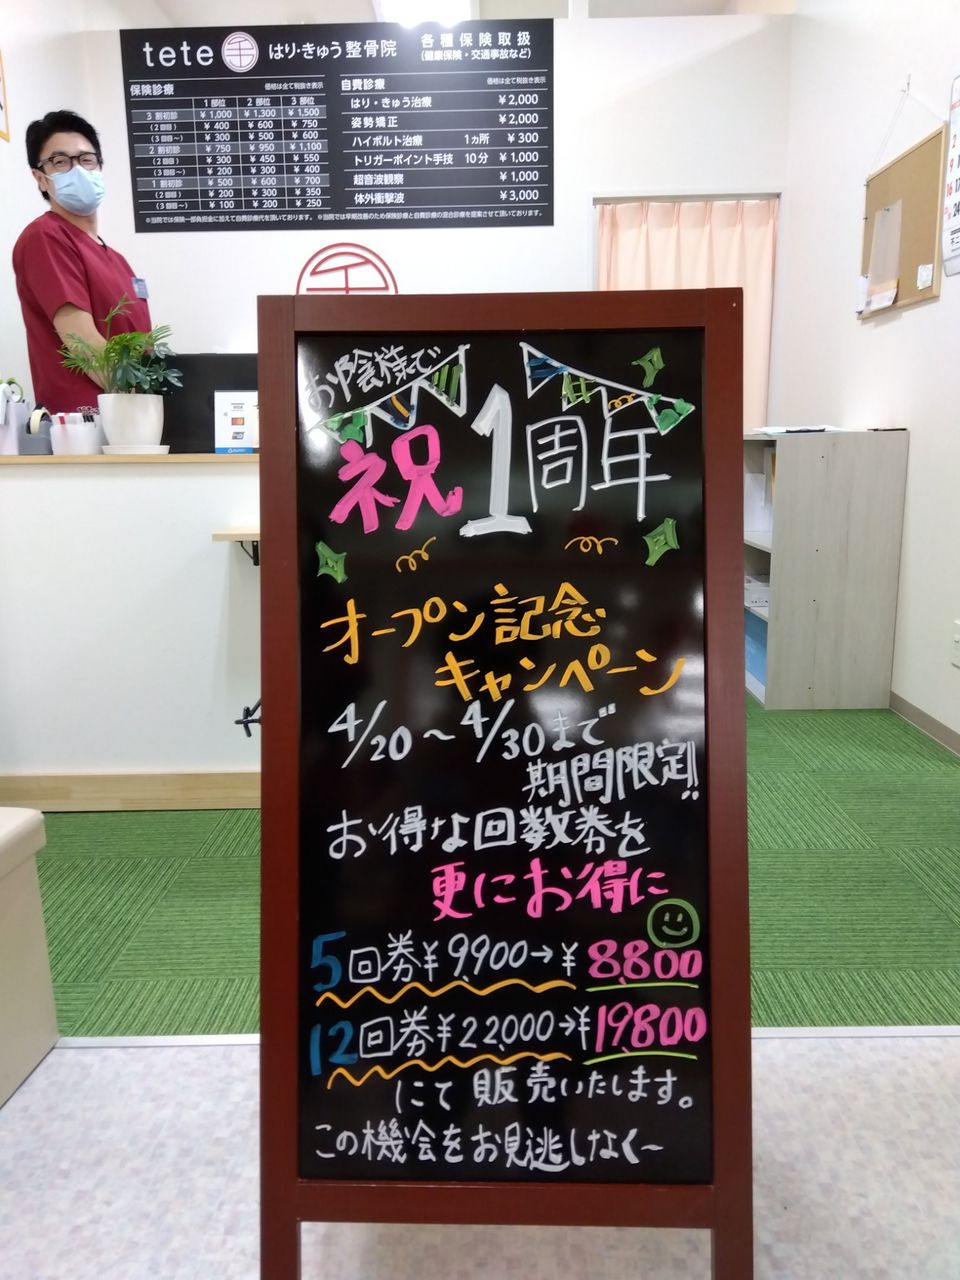 tete 手 はり・きゅう整骨院
各種保険取扱
(健康保険・交通事故など)
保険診療 価格は全て税抜き表示
1部位 2部位 3部位
3割初診 ¥1,000 ¥1,300 ¥1,500
(2回目) ¥400 ¥600 ¥750
(3回目～) ¥300 ¥500 ¥600
2割初診 ¥750 ¥950 ¥1,100
(2回目) ¥300 ¥450 ¥550
(3回目～) ¥200 ¥300 ¥400
1割初診 ¥500 ¥600 ¥700
(2回目) ¥200 ¥300 ¥350
(3回目～) ¥100 ¥200 ¥250
自費診療 価格は全て税抜き表示
はり・きゅう治療 ¥2,000
姿勢矯正 ¥2,000
ハイボルト治療 1ヵ所 ¥300
トリガーポイント手技 10分 ¥1,000
超音波観察 ¥1,000
体外衝撃波 ¥3,000
※当院では保険一部負担金に加えて自費診療代を頂いております。 ※当院では早期改善のため保険診療と自費診療の混合診療を提案させて頂いております。
お陰様で
祝1周年
オープン記念
キャンペーン
4/20～4/30まで
期間限定!!
お得な回数券を
更にお得に
5回券¥9,900→¥8,800
12回券¥22,000→¥19,800
にて販売いたします。
この機会をお見逃しなく～